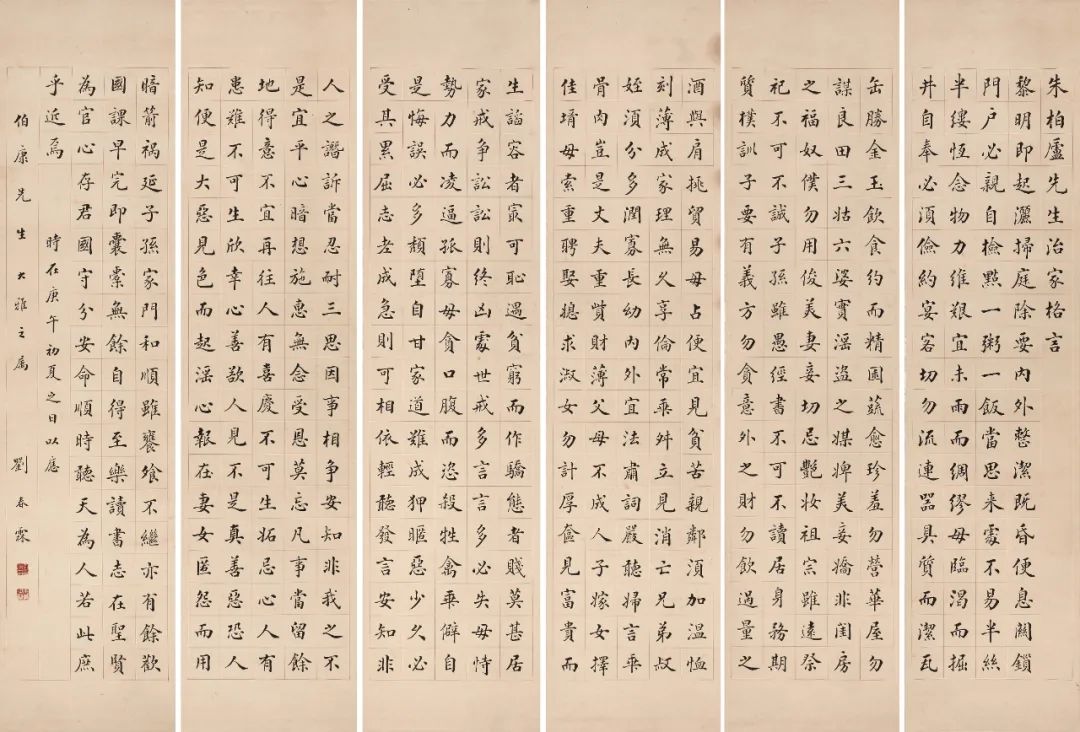 朱柏廬先生治家格言
黎明即起灑掃庭除要內外整潔既昏便息關鎖
門戶必親自撿點一粥一飯當思来處不易半絲
半縷恆念物力維艱宜未雨而綢繆毋臨渴而掘
井自奉必須儉約宴客切勿流連器具質而潔瓦
缶勝金玉飲食約而精園蔬愈珍羞勿營華屋勿
謀良田三姑六婆實淫盜之媒婢美妾嬌非閨房
之福奴僕勿用俊美妻妾切忌艷妝祖宗雖遠祭
祀不可不誠子孫雖愚經書不可不讀居身務期
質樸訓子要有義方勿貪意外之財勿飲過量之
酒與肩挑貿易毋占便宜見貧苦親鄰須加温恤
刻薄成家理無久享倫常乖舛立見消亡兄弟叔
姪須分多潤寡長幼內外宜法肅詞嚴聽婦言乖
骨肉豈是丈夫重貲財薄父母不成人子嫁女擇
佳壻毋索重聘娶媳求淑女勿計厚奩見富貴而
生諂容者冣可恥過貧窮而作驕態者賤莫甚居
家戒争訟訟則終凶處世戒多言言多必失毋恃
勢力而凌逼孤寡毋貪口腹而恣殺牲禽乖僻自
是悔誤必多頹堕自甘家道難成狎暱惡少久必
受其累屈志老成急則可相依輕聽發言安知非
人之譖訴當忍耐三思因事相争安知非我之不
是宜平心暗想施惠無念受恩莫忘凡事當留餘
地得意不宜再往人有喜慶不可生妬忌心人有
患難不可生欣幸心善欲人見不是真善惡恐人
知便是大惡見色而起淫心報在妻女匿怨而用
暗箭禍延子孫家門和順雖饔飧不繼亦有餘歡
國課早完即囊橐無餘自得至樂讀書志在聖賢
為官心存君國守分安命順時聽天為人若此庶
乎近焉 時在庚午初夏之日以應
伯康先生大雅之属 劉春霖